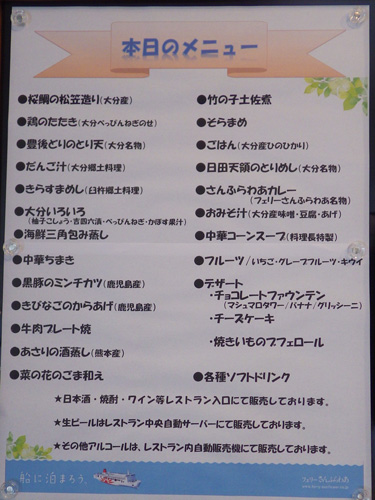 本日のメニュー
●桜鯛の松笠造り(大分産)
●鶏のたたき(大分べっぴんねぎのせ)
●豊後どりのとり天(大分名物)
●だんご汁(大分郷土料理)
●きらすまめし(臼杵郷土料理)
●大分いろいろ
(柚子こしょう・吉四六漬・べっぴんねぎ・かぼす果汁)
●海鮮三角包み蒸し
●中華ちまき
●黒豚のミンチカツ(鹿児島産)
●きびなごのからあげ(鹿児島産)
●牛肉プレート焼
●あさりの酒蒸し(熊本産)
●菜の花のごま和え
●竹の子土佐煮
●そらまめ
●ごはん(大分産ひのひかり)
●日田天領のとりめし(大分名物)
●さんふらわあカレー
(フェリーさんふらわあ名物)
●おみそ汁(大分産味噌・豆腐・あげ)
●中華コーンスープ(料理長特製)
●フルーツ/いちご・グレープフルーツ・キウイ
●デザート
・チョコレートファウンテン
(マシュマロタワー/バナナ/グリッシーニ)
・チーズケーキ
・焼きいものブフェロール
●各種ソフトドリンク
★日本酒・焼酎・ワイン等レストラン入口にて販売しております。
★生ビールはレストラン中央自動サーバーにて販売しております。
★その他アルコールは、レストラン内自動販売機にて販売しております。
船に泊まろう。
フェリーさんふらわあ